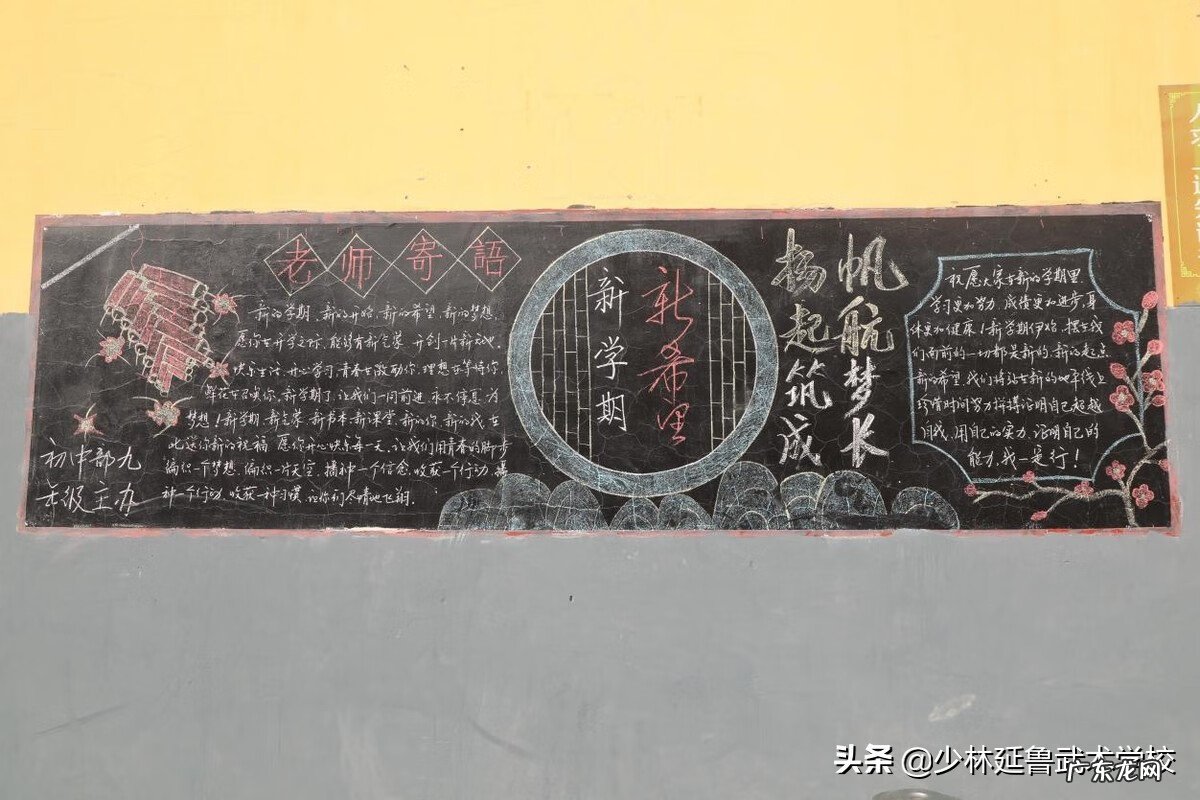 老师寄語
新的学期，新的开始，新的希望，新的梦想。
愿你在开学之际，能够有新气象，开创一片新天地。
快乐生活，开心学习，青春在激励你，理想在等待你，
鲜花在召唤你，新学期了，让我们一同前进，永不停息，为
梦想！新学期，新气象，新书本，新课堂，新的你，新的我，在
此送你新的祝福，愿你开心快乐每一天，让我们用青春的脚步
编织一个梦想，编织一片天空，播种一个信念，收获一个行动，播
种一个行动，收获一种习惯，让你们尽情地飞翔。
初中部九
年级主办
新学期
新希里
扬起筑成
帆航梦长
祝愿大家在新的学期里，
学习更加努力，成绩更加进步，身
体更加健康！新学期伊始，摆在我
们面前的一切都是新的，新的起点
新的希望，我们将站在新的地平线上
珍惜时间努力拼搏证明自己超越
自我，用自己的实力，证明自己的
能力，我一定行！
头条 @少林延鲁武术学校
广东龙网